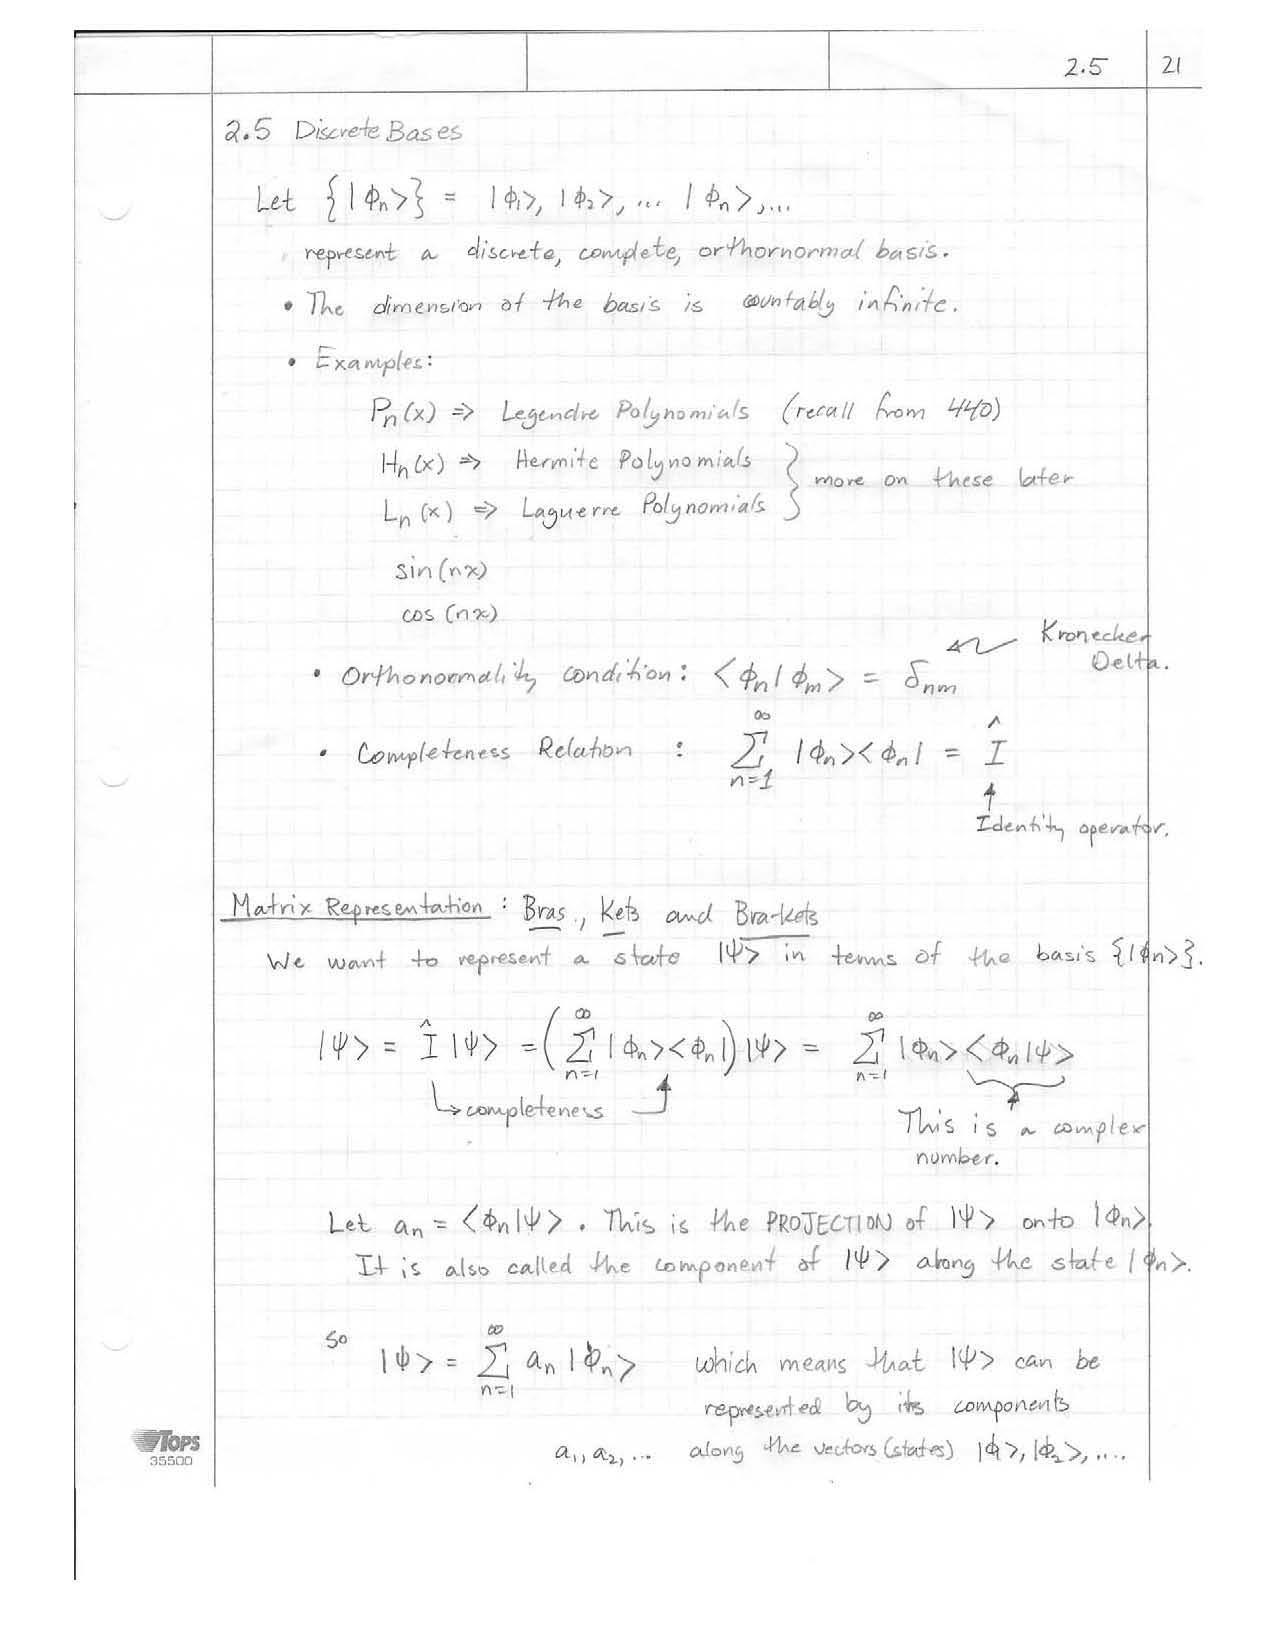 2.5 21
2.5 Discrete Bases
Let {|ϕn>} = |ϕ1>, |ϕ2>, ... |ϕn>,...
represent a discrete, complete, orthornormal basis.
• The dimension of the basis is countably infinite.
• Examples:
Pn(x) ⇒ Legendre Polynomials (recall from 440)
Hn(x) ⇒ Hermite Polynomials
} more on these later
Ln(x) ⇒ Laguerre Polynomials
sin(nx)
cos(nx)
Kronecker
Delta.
• Orthonormality condition: <ϕn|ϕm> = δnm
• Completeness Relation : ∑_{n=1}^{∞} |ϕn><ϕn| = Î
Identity operator.
Matrix Representation : Bras, Kets and Bra-kets
We want to represent a state |Ψ> in terms of the basis {|ϕn>}.
|Ψ> = Î|Ψ> = (∑_{n=1}^{∞} |ϕn><ϕn|)|Ψ> = ∑_{n=1}^{∞} |ϕn><ϕn|Ψ>
↳completeness
This is a complex
number.
Let an = <ϕn|Ψ>. This is the PROJECTION of |Ψ> onto |ϕn>
It is also called the component of |Ψ> along the state |ϕn>.
So |Ψ> = ∑_{n=1}^{∞} an|ϕn> which means that |Ψ> can be
represented by its components
a1, a2, ... along the vectors (states) |ϕ1>, |ϕ2>, ....
TOPS
35500